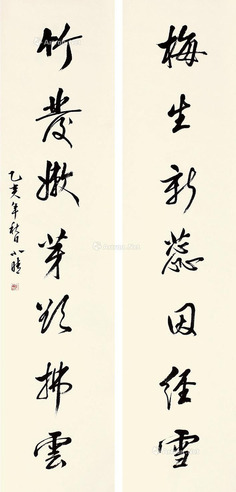 梅生新蕊因经雪
竹发嫩芽欲拂云
乙亥年秋日 小晴